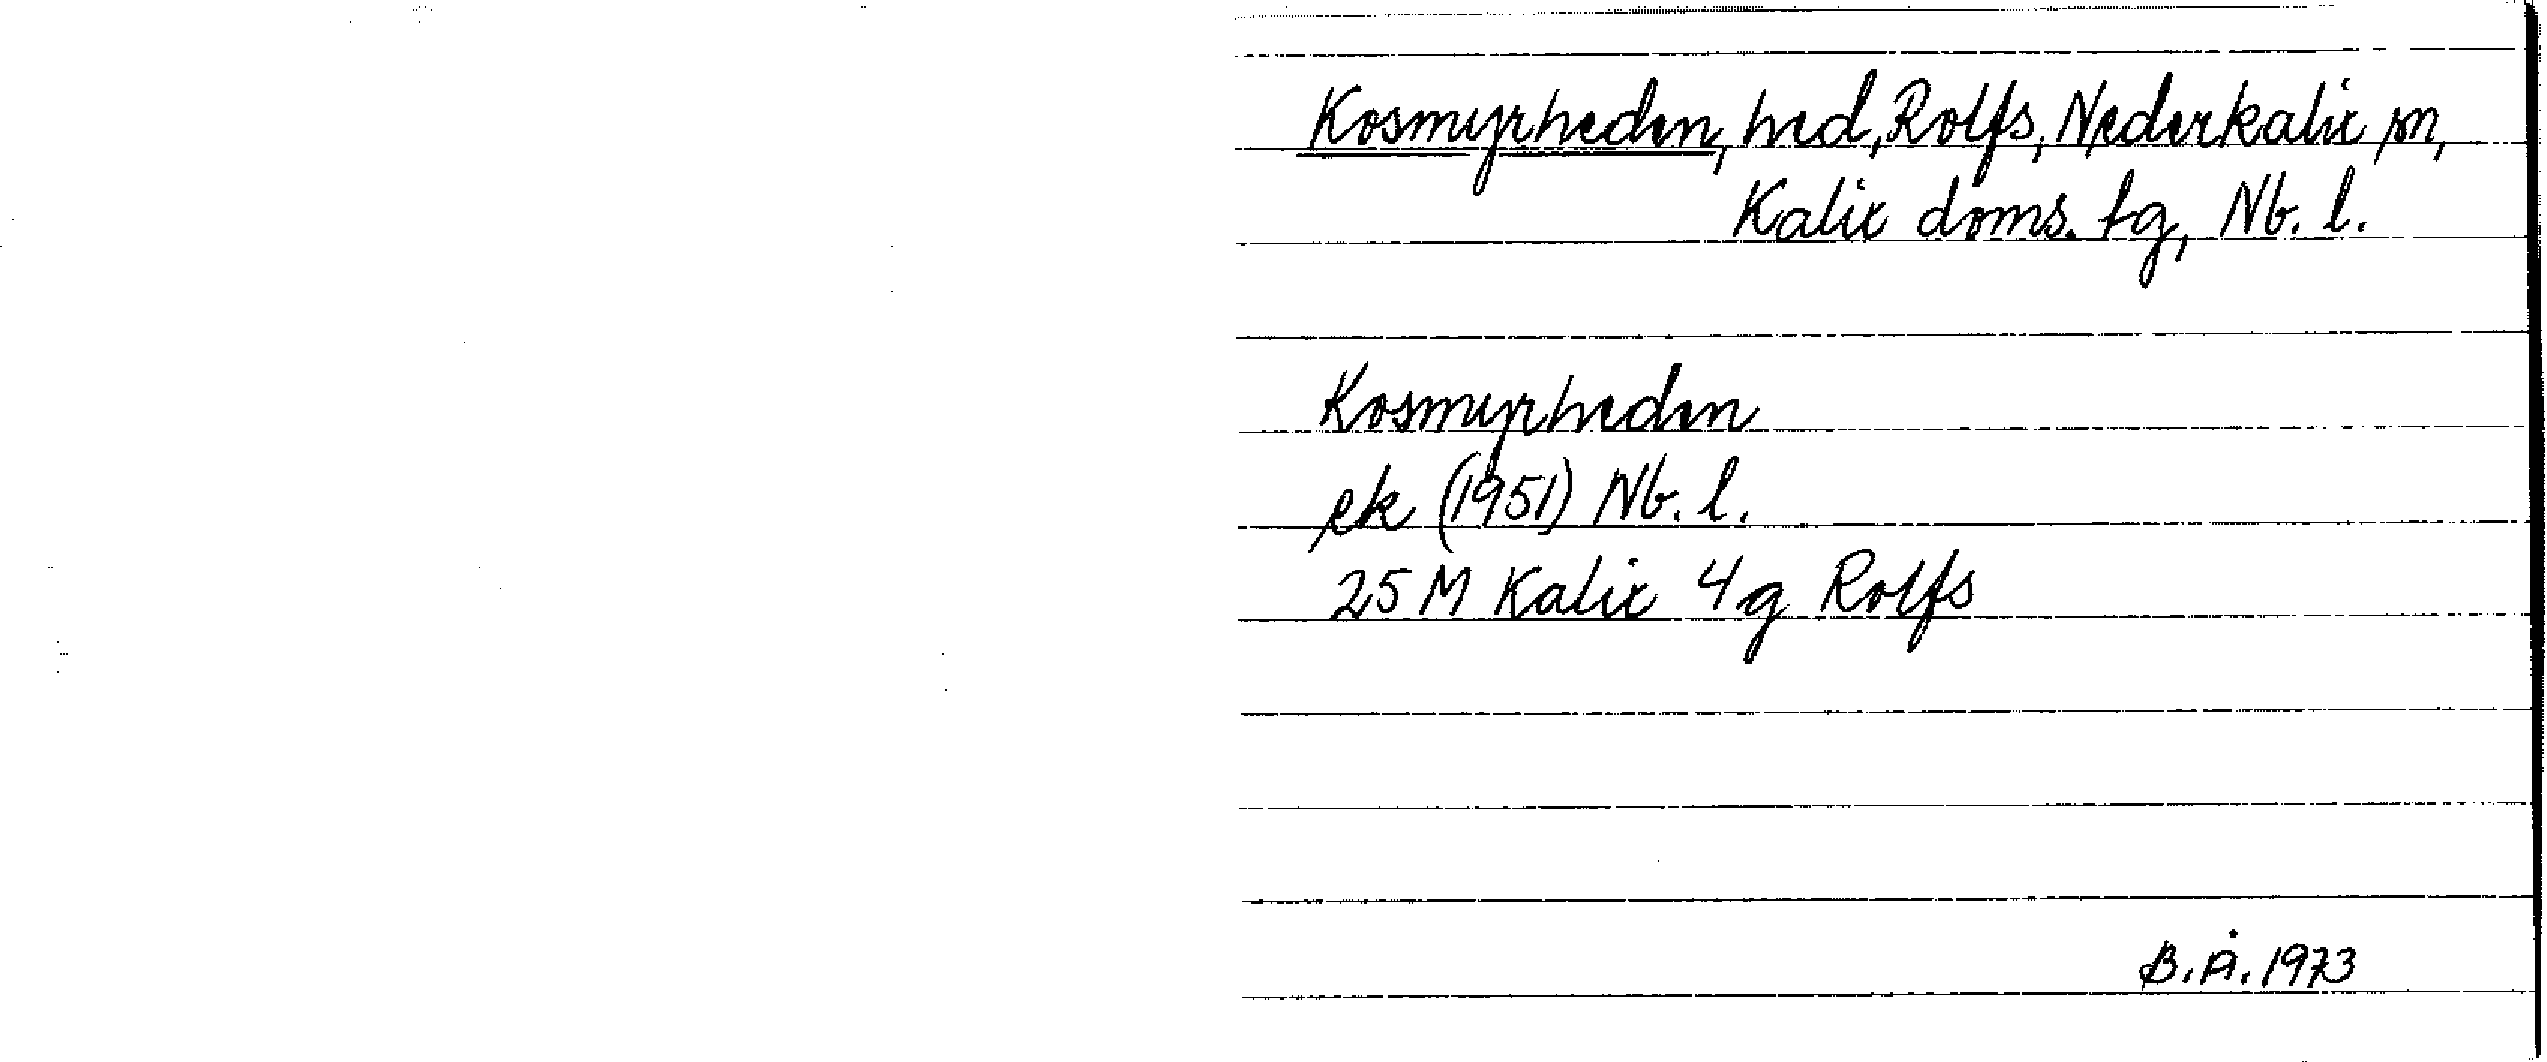 Kosmyrheden, hed, Rolfs, Nederkalix sn,
Kalix doms. tg, Nb. l.
Kosmyrheden
ek (1951) Nb. l.
25 M Kalix 4g Rolfs
B.Å. 1973